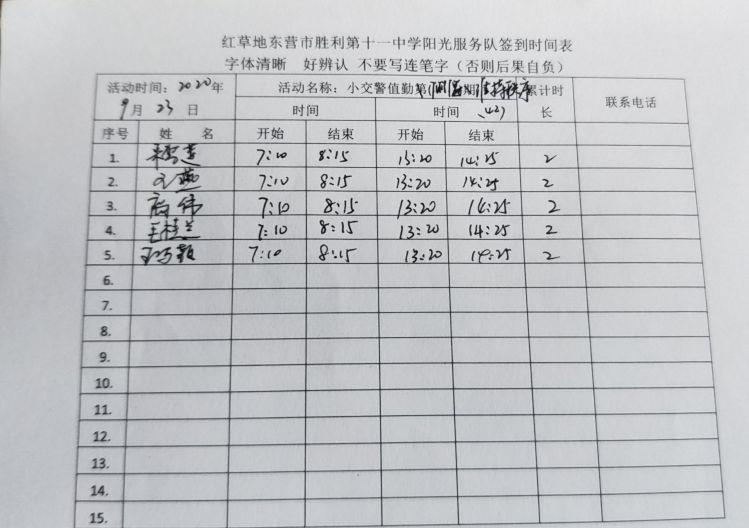 红草地东营市胜利第十一中学阳光服务队签到时间表
字体清晰 好辨认 不要写连笔字（否则后果自负）
活动时间：2020年 活动名称：小交警值勤第 期 维持秩序 累计时 联系电话
9月 23 日 时间 时间 长
序号 姓 名 开始 结束 开始 结束
1. 7:10 8:15 13:20 14:25 2
2. 7:10 8:15 13:20 14:25 2
3. 7:10 8:15 13:20 14:25 2
4. 王桂兰 7:10 8:15 13:20 14:25 2
5. 7:10 8:15 13:20 14:25 2
6.
7.
8.
9.
10.
11.
12.
13.
14.
15.